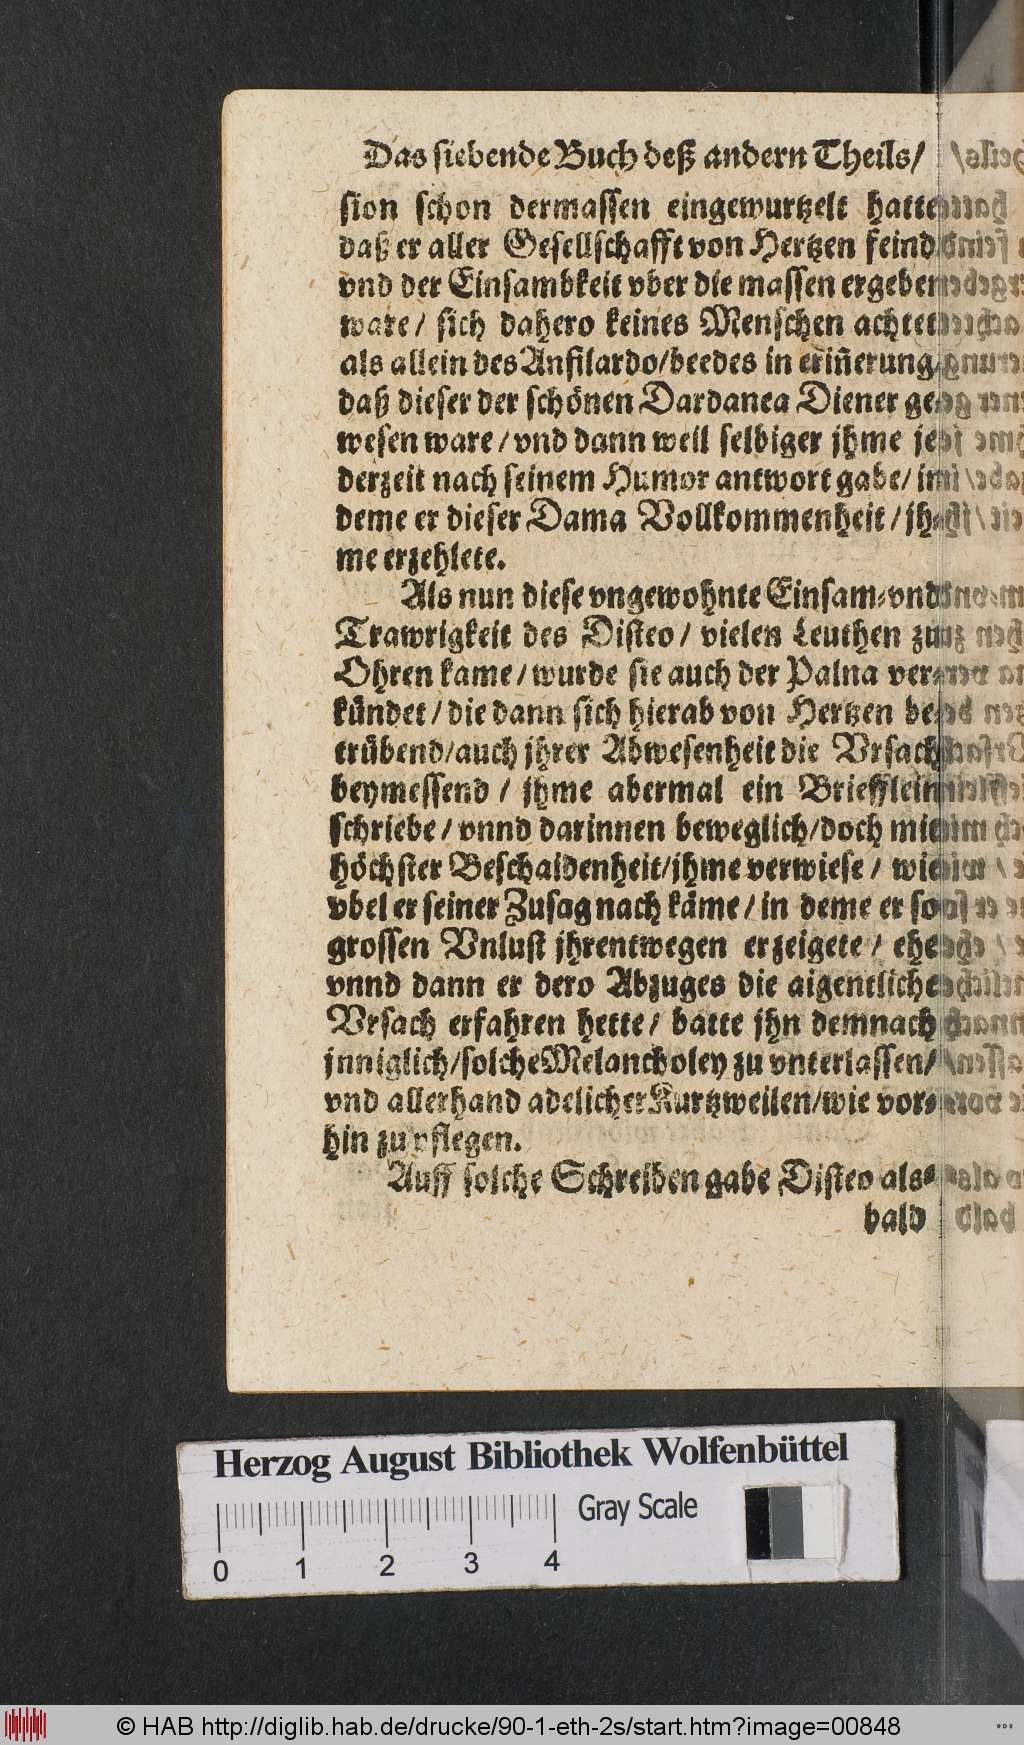 Das siebende Buch deß andern Theils/
sion schon dermassen eingewurtzelt hatte
daß er aller Gesellschafft von Hertzen feind
vnd der Einsambkeit vber die massen ergeben
ware/ sich dahero keines Menschen achtet
als allein des Anfilardo/beedes in eriñerung/
daß dieser der schönen Dardanea Diener ge⸗
wesen ware/vnd dann weil selbiger jhme je⸗
derzeit nach seinem Humor antwort gabe/ in⸗
deme er dieser Dama Vollkommenheit/jh⸗
me erzehlete.
Als nun diese vngewohnte Einsam⸗vnd
Trawrigkeit des Disteo/ vielen Leuthen zu
Ohren kame/wurde sie auch der Palna ver⸗
kündet/die dann sich hierab von Hertzen be⸗
trübend/auch jhrer Abwesenheit die Vrsach
beymessend/ jhme abermal ein Briefflein
schriebe/vnnd darinnen beweglich/doch mit
höchster Beschaidenheit/jhme verwiese/ wie
vbel er seiner Zusag nach käme/in deme er so
grossen Vnlust jhrentwegen erzeigete/ ehe
vnnd dann er dero Abzuges die aigentliche
Vrsach erfahren hette/ batte jhn demnach
jnniglich/solche Melancholey zu vnterlassen/
vnd allerhand adelicher Kurtzweilen/wie vor⸗
hin zu pflegen.
Auff solche Schreiben gabe Disteo als⸗
bald
Herzog August Bibliothek Wolfenbüttel
Gray Scale
0 1 2 3 4
© HAB http://diglib.hab.de/drucke/90-1-eth-2s/start.htm?image=00848